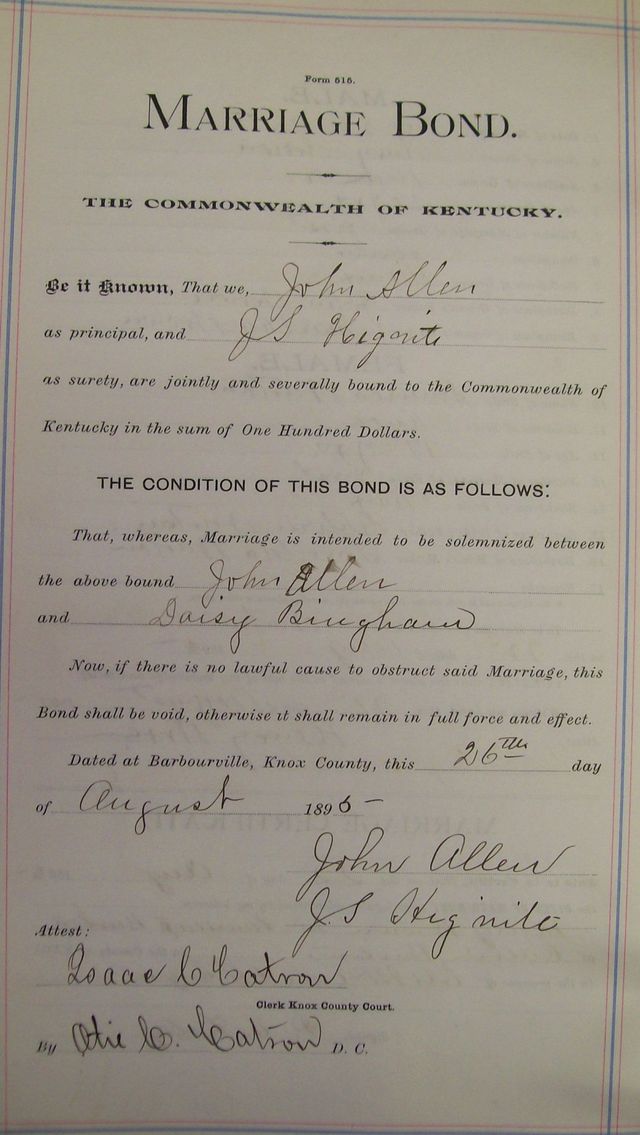 Form 515.
MARRIAGE BOND.
THE COMMONWEALTH OF KENTUCKY.
Be it Known, That we, John Allen
as principal, and J S Hignite
as surety, are jointly and severally bound to the Commonwealth of
Kentucky in the sum of One Hundred Dollars.
THE CONDITION OF THIS BOND IS AS FOLLOWS:
That, whereas, Marriage is intended to be solemnized between
the above bound John Allen
and Daisy Bingham
Now, if there is no lawful cause to obstruct said Marriage, this
Bond shall be void, otherwise it shall remain in full force and effect.
Dated at Barbourville, Knox County, this 26th day
of August 1895
John Allen
J. S Hignite
Attest:
Isaac C Catron
Clerk Knox County Court.
By Otie C. Catron D. C.